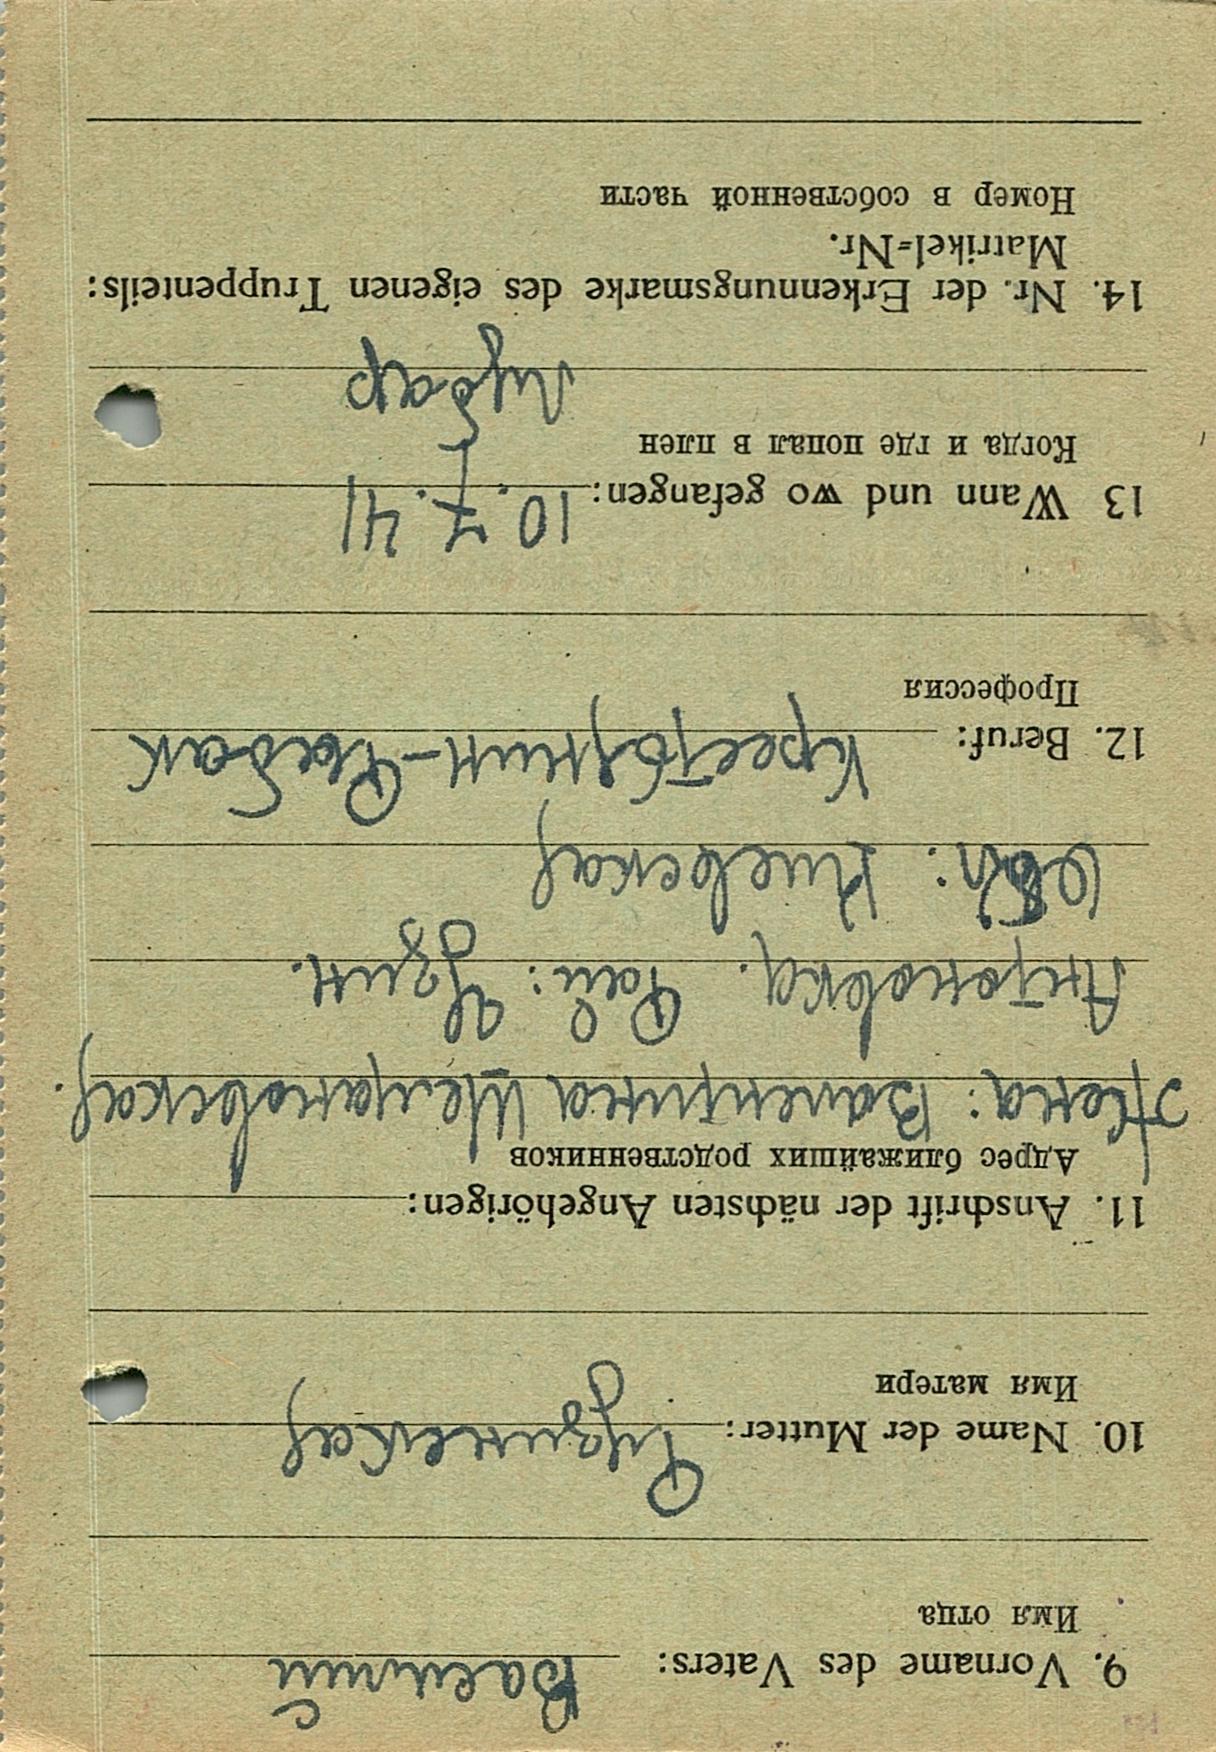 9. Vorname des Vaters: Василий
Имя отца
10. Name der Mutter:
Имя матери
11. Anschrift der nächsten Angehörigen:
Адрес ближайших родственников
Жена: Валентина
Антоновка. Рай: Узин.
Обл: Киевская
12. Beruf: Крестьянин-Рыбак
Профессия
13 Wann und wo gefangen: 10.7.41
Когда и где попал в плен
Любар
14. Nr. der Erkennungsmarke des eigenen Truppenteils:
Matrikel-Nr.
Номер в собственной части